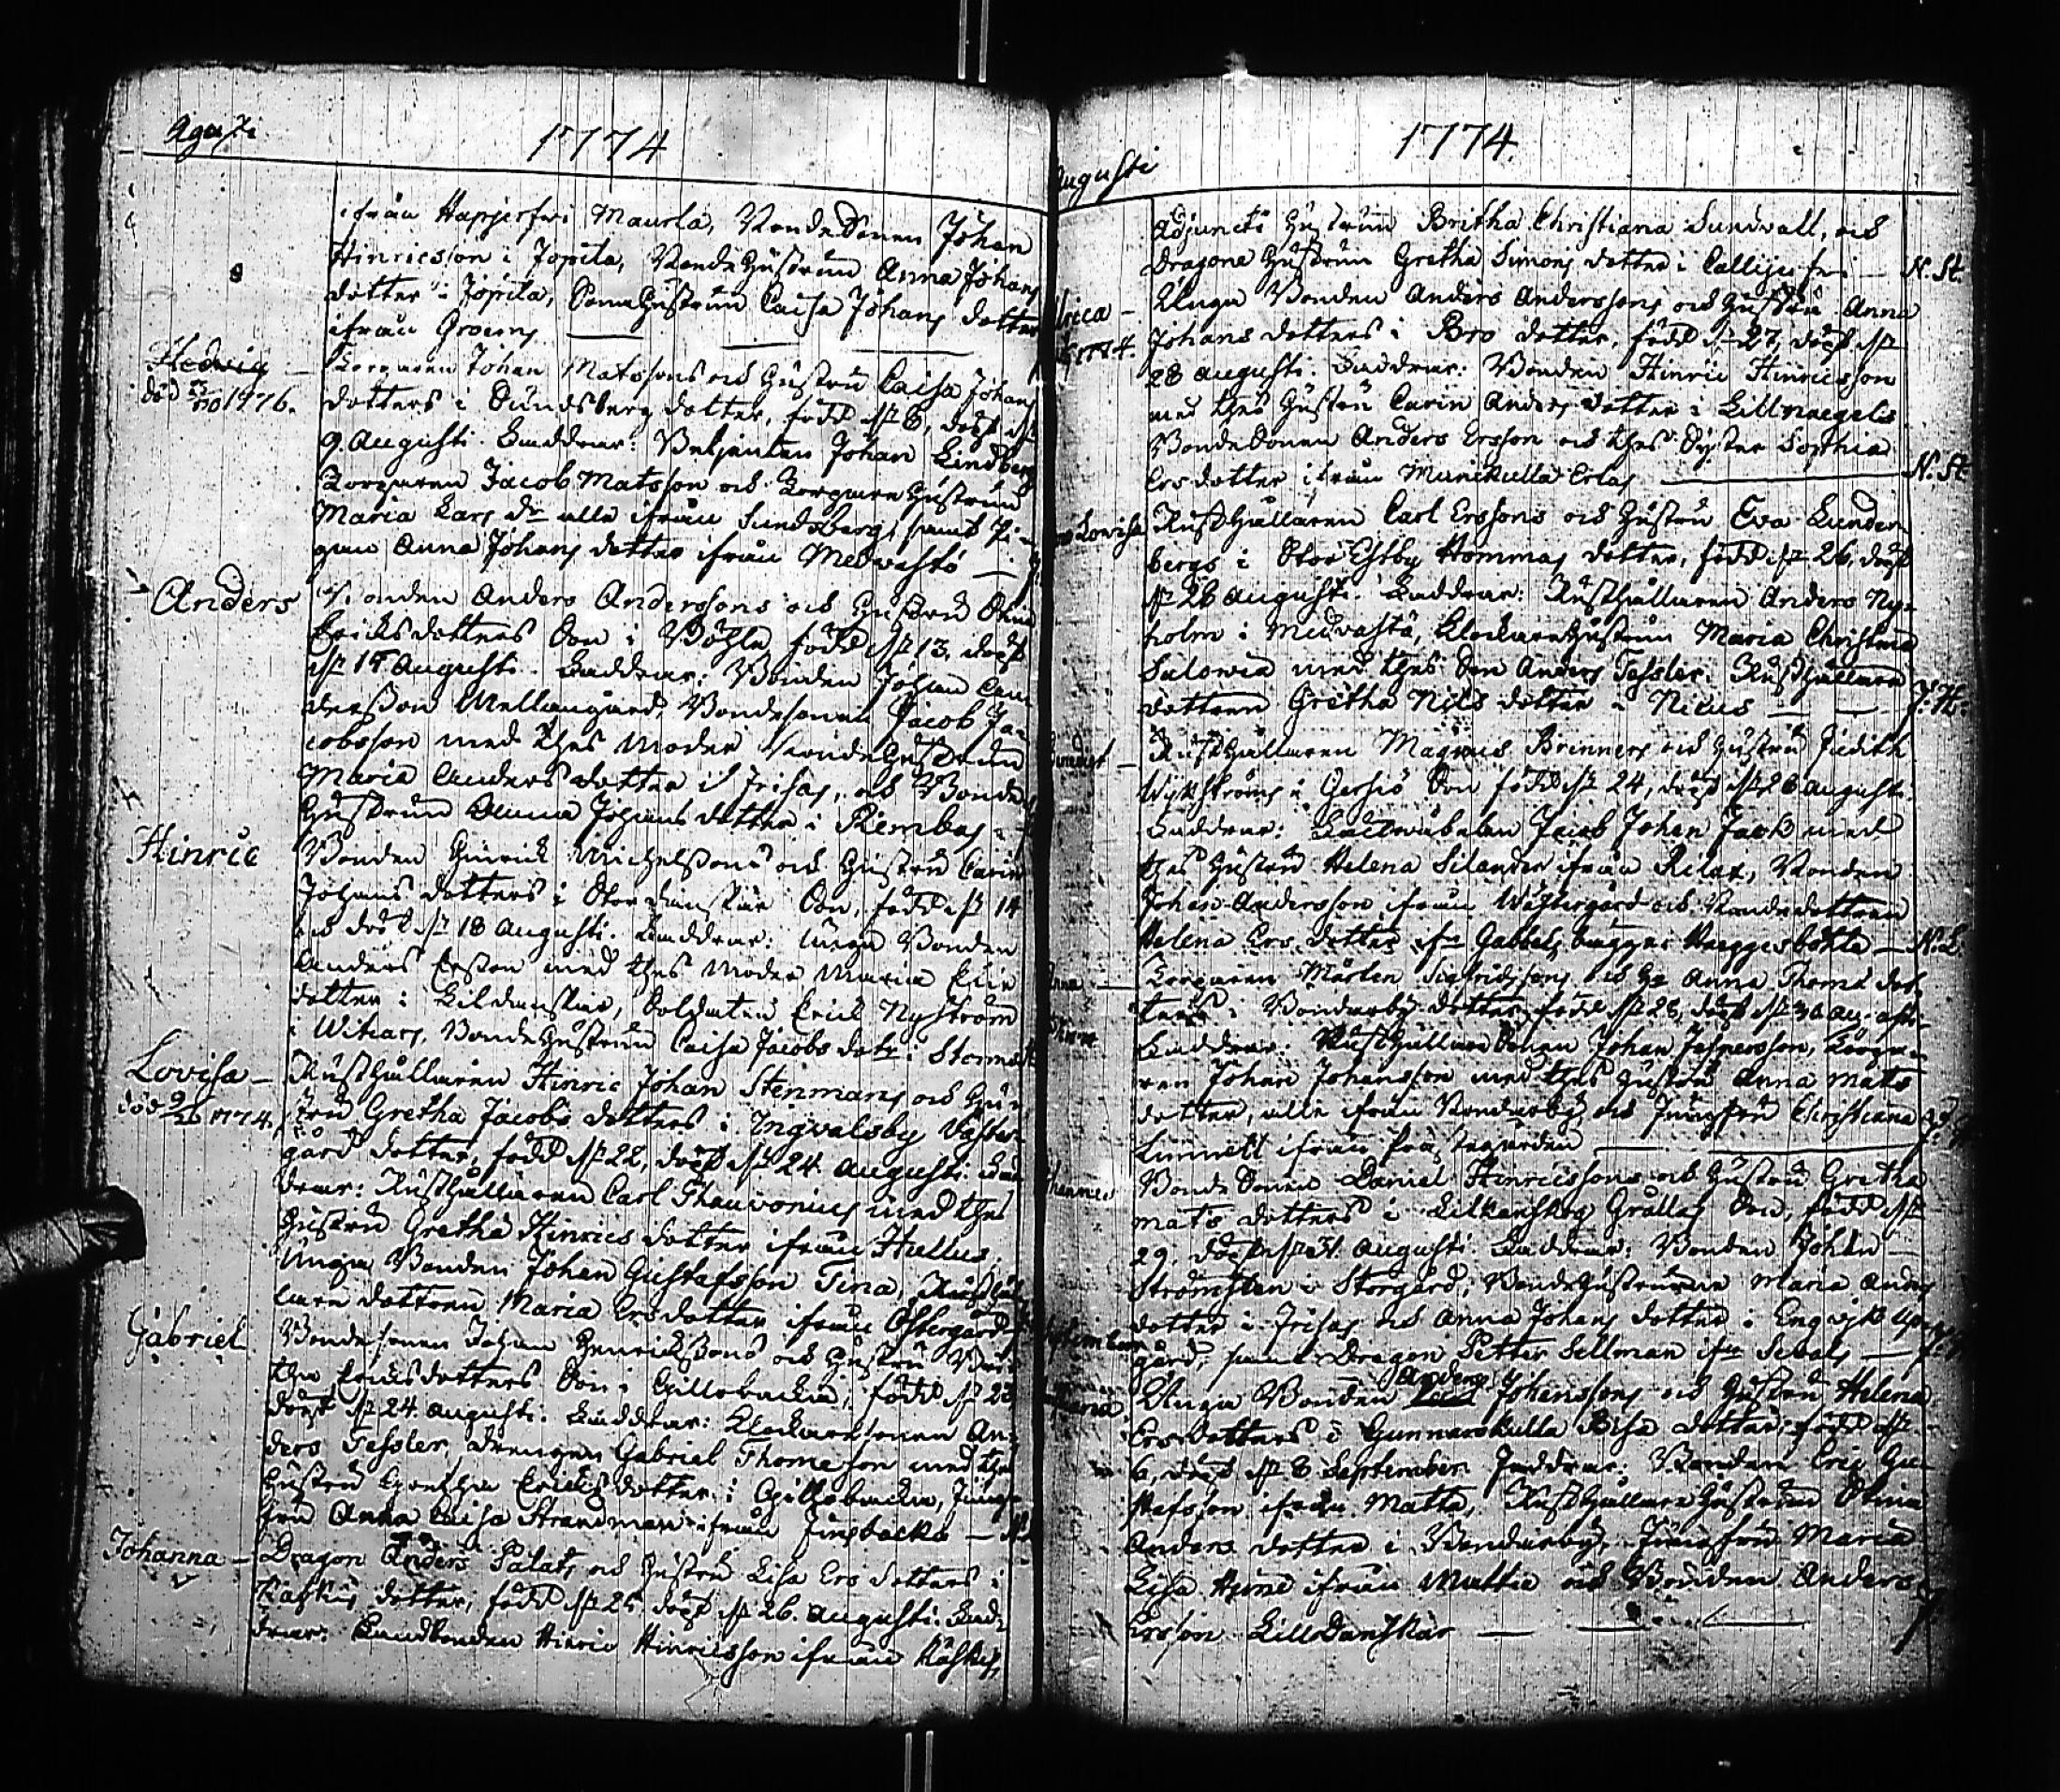 Agusti
1774
ifrån Hapjerfwi Maurla, BondeSonen Johan
Hinricsson i Jopila, Bonde Hustrun Anna Johans
dotter i Jopila, Sonehustrun Caisa Johans dotter
ifrån Groens
Hedwig
död 1776.
Torparen Johan Matssons och Hustru Caisa Johans
dotters i Sundsberg dotter, född d 6, döpt d
9. Augusti. Faddrar: Betjenten Johan Lindberg
Torparen Jacob Matsson och Torpare Hustrun
Maria Lars dr alla ifrån Sundsberg, samt Pi-
gan Anna Johans dotter ifrån Medvastö
Anders
Bonden Anders Anderssons och Hustru
Ericksdotters Son i Böhle född d 13, döpt
d Augusti. Faddrar: Bonden Johan An
dersson Mellangård, Bondesonen Jacob Ja-
cobsson med thes Moder BondeHustrun
Maria Anders dotter i Frisas, och Bonde
Hustrun Anna Johans dotter i Rembas
Hinric
Bonden Hinrick Michelssons och Hustru Carin
Johans dotters i Stordanskar Son, född d 14
och döpt d 18 Augusti. Faddrar: Unga Bonden
Anders Ersson med thes Moder Maria Eric
dotter i Lildanskar, Soldaten Erick Nyström
i Witars, Bonde Hustrun Caisa Jacobs dotr i
Lovisa
död 1774.
Rusthållaren Hinric Johan Stenmans och Hu-
stru Gretha Jacobs dotters i Ingvalsby Väster-
gård dotter, född d 22, döpt d 24 Augusti. Fad
drar: Rusthållaren Carl Thauvonius med thes
Hustru Gretha Hinrics dotter ifrån Hullus.
Unga Bonden Johan Gustafsson Tina, Rusthål
lare dottren Maria Ersdotter ifrån Östergård
Gabriel
Bondesonen Johan Henrickssons och Hustru Bri-
tha Ericksdotters Son i Gillobacka, född d 23
döpt d 24 Augusti. Faddrar: Klockaresonen An-
ders Tessler, drengen Gabriel Thomeson med thes
Hustru Gretha Ericks dotter i Gillobacka, Jung-
fru Anna Caisa Strandman ifrån Finsbacka
Johanna
Dragon Anders Palats och Hustru Lisa Ers dotters i
Kaskis dotter, född d 25 döpt d 26. Augusti. Fad-
drar: Landbonden Hinric Hinricsson ifrån Kaskis,
1774.
Augusti
Adjuncts Hustrun Britha Christiana Sundvall, och
Dragone Hustrun Gretha Simons dotter i Calljerfwi
N. St.
1774.
Unga Bonden Anders Anderssons och Hustru Anna
Johans dotters i Bro dotter, född d 27, döpt d
28 Augusti. Faddrar: Bonden Hinric Hinricsson
med thes Hustru Carin Anders dotter i Lillnaegels
BondeSonen Anders Ersson och thes Syster Sophia
Ersdotter ifrån Munkulla Erlas
N. St
Lovisa
Rusthållaren Carl Erssons och Hustru Eva Lunder-
bergs i Stor Esby Hommas dotter, född d 26, döpt
d 28 Augusti. Faddrar: Rusthållaren Anders Ny-
holm i Medvastä, Klockare Hustrun Maria Christina
Salowia med thes Son Anders Tessler. Rusthållare
dottren Gretha Nils dotter i Nicus
Rusthållaren Magnus Brinners och Hustru Judith
Wykströms i Gersiö Son född d 24, döpt d 28 Augusti.
Faddrar: Jacob Johan med
thes Hustru Helena Silander ifrån Rilax, Bonden
Johan Andersson ifrån Wästergård och Bondedottren
Helena Ers dotter ifr Gabbels
N. L.
Torparen Mårten Sigfridssons och H Anna Thome dot
ters i Bondarby dotter, född d 28, döpt d 30 Augusti
Faddrar: RusthållareSonen Johan Jespersson, Torpa-
ren Johan Johansson med thes Hustru Anna Mats
dotter, alla ifrån Bondarby och Jungfru Christiana
Linnell ifrån Prästegården
BondeSonen Daniel Hinricssons och Hustru Gretha
Mats dotters i Lilkanskog Grållas Son, född d
29, döpt d 31. Augusti. Faddrar: Bonden Johan
Strömsten i Storgård, BondeHustrurne Maria Anders
dotter i Frisas och Anna Johans dotter i Engvik
gård, samt Dragon Petter Sellman ifr Sevals
Anders
Unga Bonden Johanssons och Hustru Helena
Ersdotters i Gunnarskulla Bisa dotter, född d
6, döpt d 8 September Faddrar: Bonden Eric Gu-
stafsson ifrån Matta, Rusthållare Hustrun Stina
Anders dotter i Bondarby, Jungfru Maria
Lisa Hjerne ifrån Matta och Bonden Anders
Ersson LillDanskar